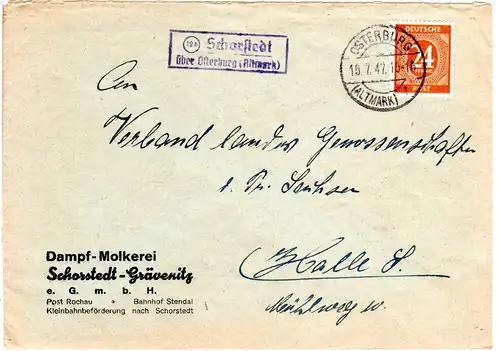 Schorstedt
über Osterburg (Altmark)
OSTERBURG
(ALTMARK)
DEUTSCHE
24
POST
An
Verband landw Genossenschaften
Halle S.
Mühlweg
Dampf-Molkerei
Schorstedt-Grävenitz
e. G. m. b. H.
Post Rochau + Bahnhof Stendal
Kleinbahnbeförderung nach Schorstedt